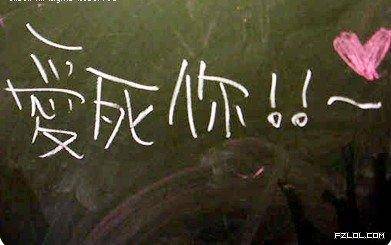 愛死你!!~
FZLOL.COM